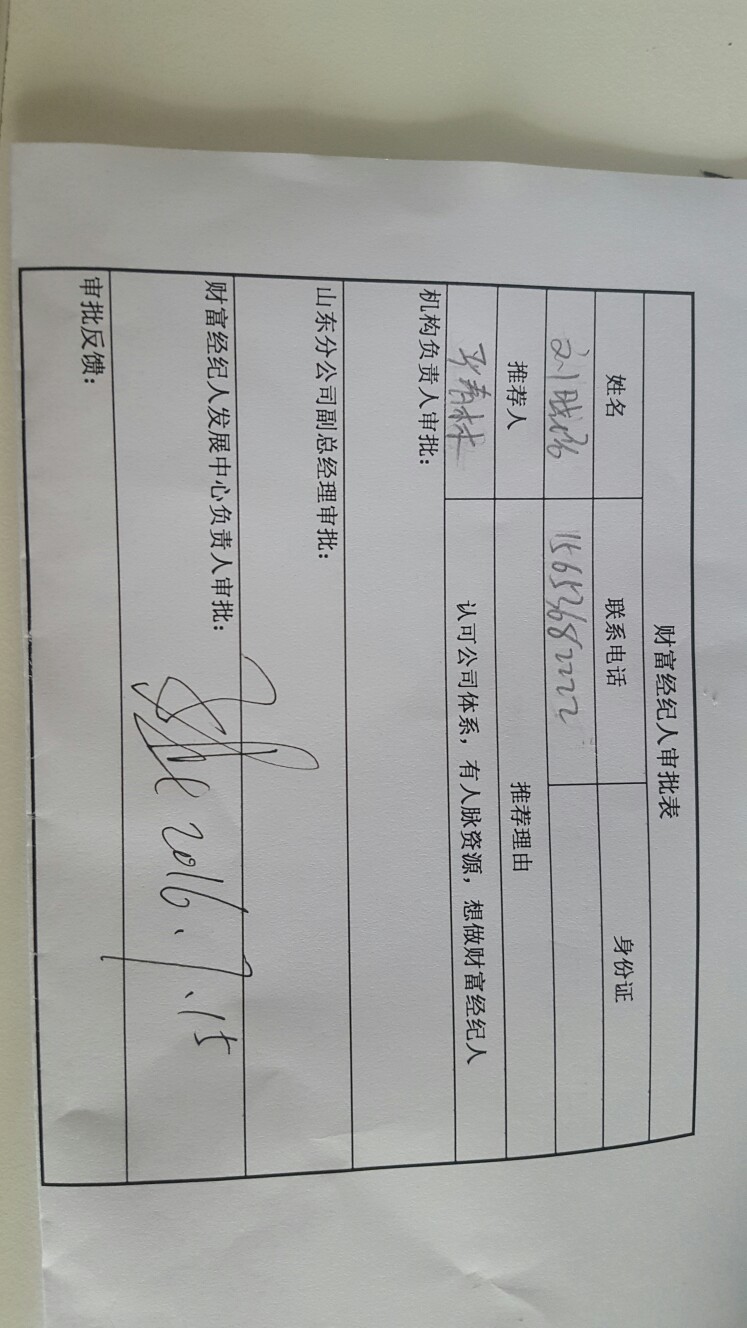 财富经纪人审批表
姓名 联系电话 身份证
刘 15653682222
推荐人 推荐理由
春林 认可公司体系，有人脉资源，想做财富经纪人
机构负责人审批：
山东分公司副总经理审批：
财富经纪人发展中心负责人审批：
2016.7.15
审批反馈：